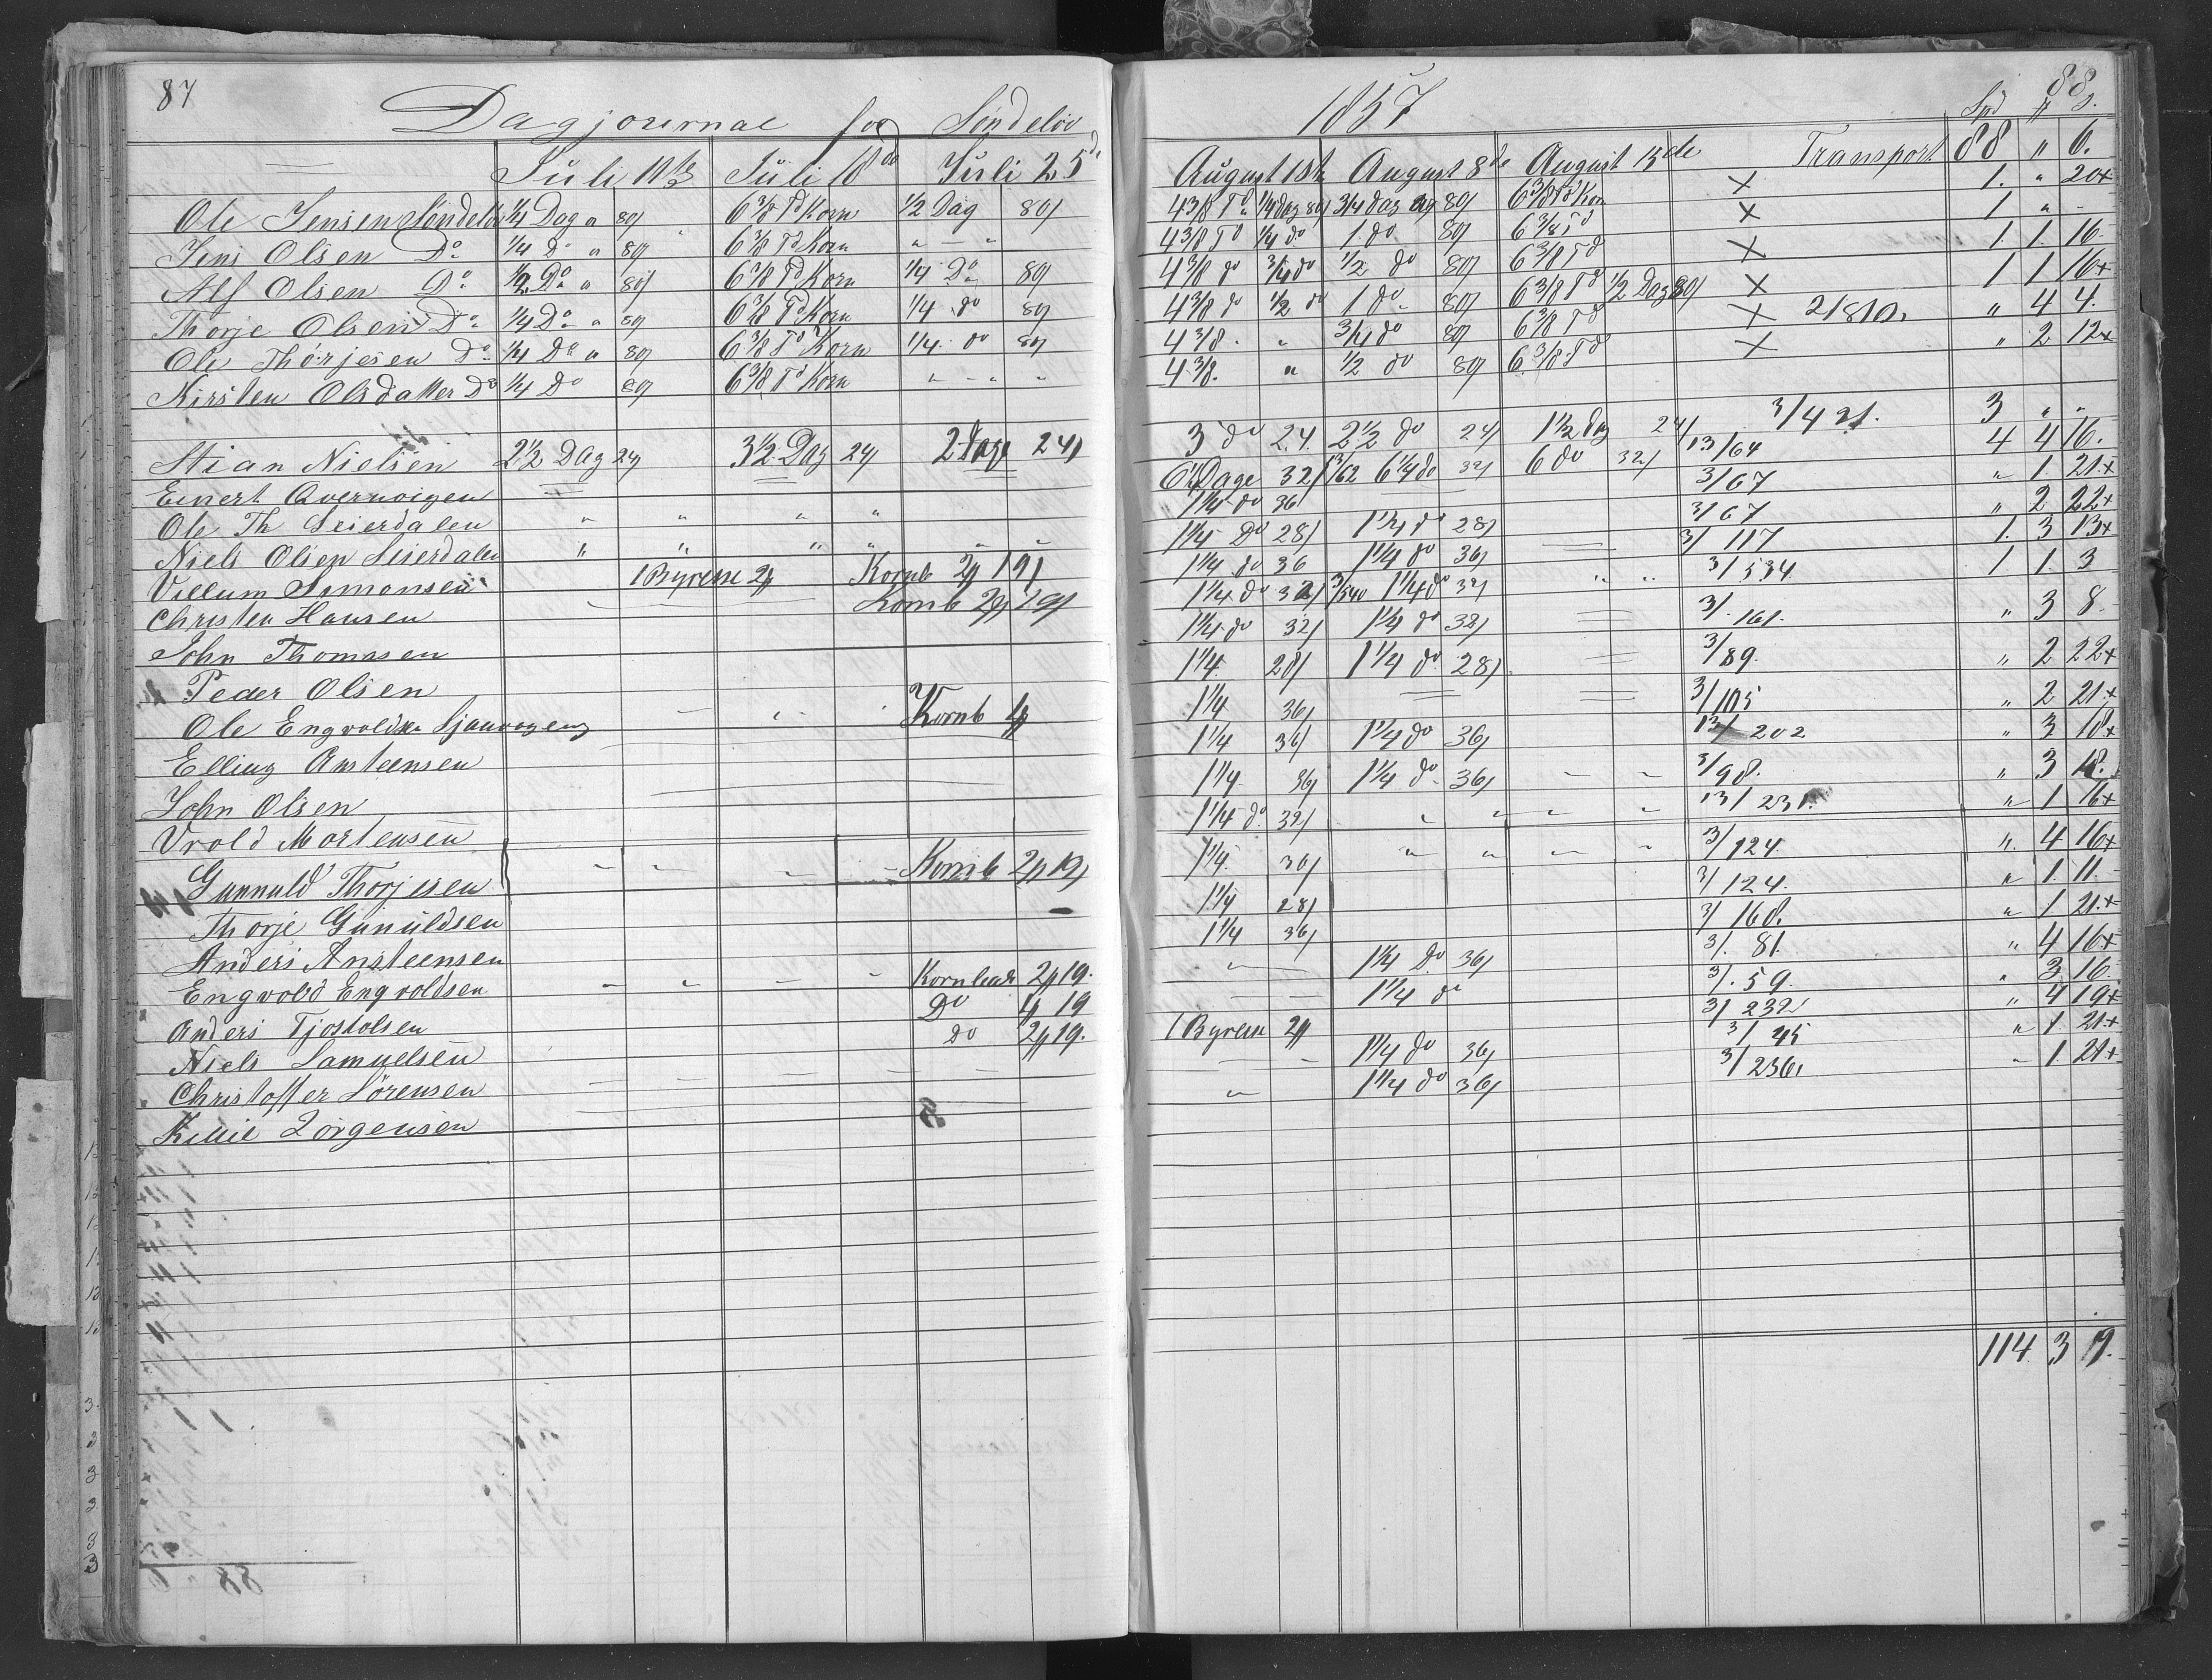 87
Dagjournal for Søndeløv
Juli 11te Juli 18de Juli 25d
Ole Jensen Søndeløv 1/4 Dag a 80/ 6 3/8 Td Korn 1/2 Dag 80/
Jens Olsen Do 1/4 D a 80/ 6 3/8 Td Korn " - "
Alf Olsen Do 1/2 Do a 80/ 6 3/8 Td Korn 1/4 Do 80/
Thorje Olsen Do 1/4 Do a 80/ 6 3/8 Td Korn 1/4 do 80/
Ole Thorjesen Do 1/4 Do a 80/ 6 3/8 Td Korn 1/4 do 80/
Kirsten Olsdatter Do 1/4 Do 80/ 6 3/8 Td Korn " - " "
Stian Nielsen 2 1/2 Dag 24/ 3 1/2 Dag 24/ 2 Dage 24/
Einert
Ole Th Seierdalen " " " "
Niels Olsen Seierdalen " " " " - -
Villum Simonsen 1 Byresse Kornb 19/
Christen Hansen Kornb 19/
John Thomasen
Peder Olsen
Ole Engvoldsen Kornb
Elling Ansteensen
John Olsen
Vrold Mortensen
Gunnuld Thorjesen Kornb 19/
Thorje Gunuldsen
Anders Ansteensen
Engvold Engvoldsen 19.
Anders Tjostolsen Do 19
Niels Samuelsen do 19.
Christoffer Sörensen
Kittil Jörgensen
1857
88
Spd
August 1ste August 8de August 15de Transport 88 " 6.
4 3/8 Td 1/4 dag 80/ 3/4 dag 80/ 6 3/8 Td Kor X 1. " 20+
4 3/8 Td 1/4 do 1 do 80/ 6 3/8 Td X 1 " -
4 3/8 do 3/4 do 1/2 do 80/ 6 3/8 Td X 1. 1. 16-
4 3/8 do 1/2 do 1 do 80/ 6 3/8 Td 1/2 Dag 80/ X 1 1 16+
4 3/8 . " 3/4 do 80/ 6 3/8 Td X " 4 4.
4 3/8. " 1/2 do 80/ 6 3/8 Td X " 2 12+
3 do 24. 2 1/2 do 24/ 1 1/2 dag 24/ 3 " "
32/ 6 1/4 do 32/ 6 do 32/ 13/64 4 4 16.
1 1/4 do 36/ 3/67 " 1. 21+
1 1/4 Do 28/ 1 1/4 do 28/ 3/67 " 2 22+
1 1/4 do 36 1 1/4 do 36/ 3/117 1. 3 13+
1 1/4 do 32/ 3/540 1 1/4 do 32/ " " 3/534 1 1 3
1 1/4 do 32/ 1 1/4 do 32/ 3/161. " 3 8.
1 1/4. 28/ 1 1/4 do 28/ 3/89. " 2 22+
1 1/4 36/ 3/105 " 2 21+
1 1/4 36/ 1 1/4 do 36/ 202 " 3 18+
1 1/4 36/ 1 1/4 do 36/ - - 3/98. " 3 18.
1 1/4 do 32/ " " " " 13/231. " 1. 16+
1 1/4. 36/ " " " " 3/124. " 4 16+
1 1/4 28/ 3/124. " 1. 11.
1 1/4 36/ 3/168. " 1 21+
" 1 1/4 Do 36/ 3/81. " 4 16+
- - 1 1/4 d 3/59. " 3 16
1 Byresse 3/232 " 4 19+
- - 1 1/4 do 36/ 3/45 " 1. 21+
" 1 1/4 do 36/ 3/236. " 1. 21+
114 3 9.